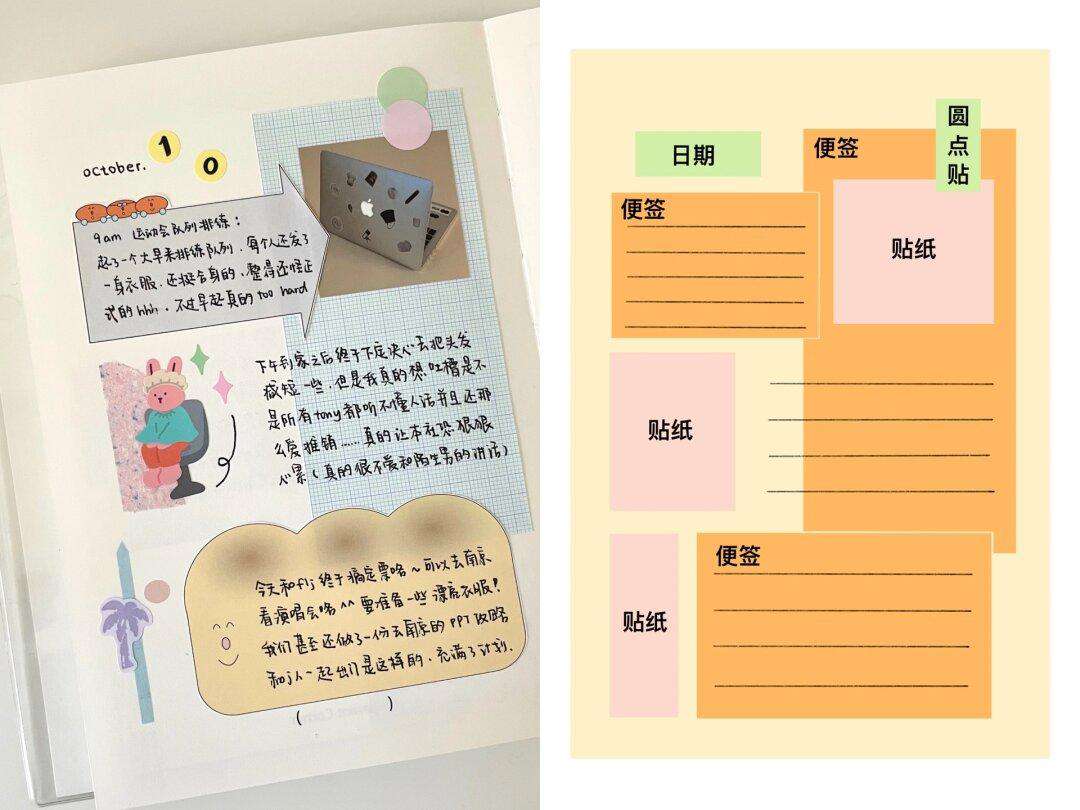 october. 10
9am 运动会队列排练：
起了一个大早来排练队列，每个人还发了
一身衣服，还挺合身的，整得还怪正
式的hhh，不过早起真的too hard
下午到家之后终于下定决心去把头发
剪短一些，但是我真的想吐槽是不
是所有tony都听不懂人话并且还那
么爱推销……真的让本社恐狠狠
心累（真的很不爱和陌生男的讲话）
今天和flj终于搞定票咯~可以去南京
看演唱会咯^^要准备一些漂亮衣服！
我们甚至还做了一份去南京的PPT攻略
和j人一起出门是这样的，充满了计划.
(        )
日期
便签
圆点贴
便签
贴纸
贴纸
贴纸
便签